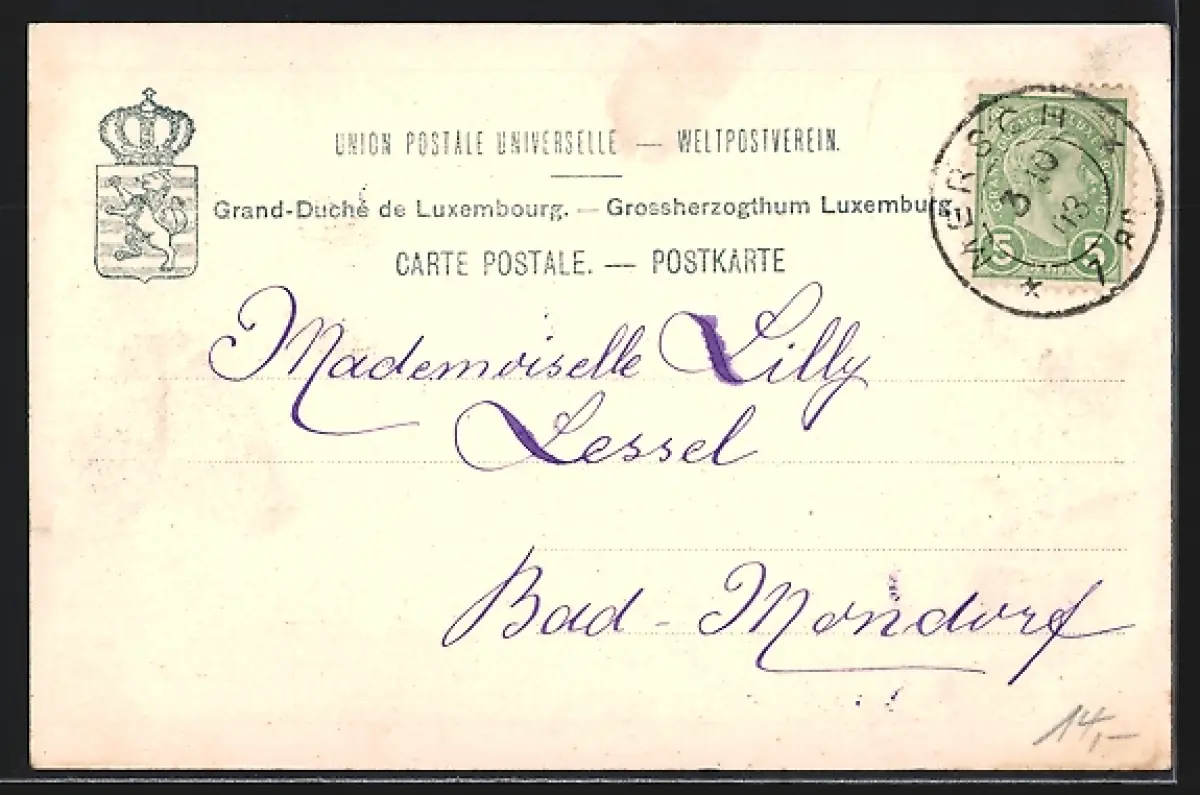 UNION POSTALE UNIVERSELLE — WELTPOSTVEREIN.
Grand-Duché de Luxembourg. — Grossherzogthum Luxemburg.
CARTE POSTALE. — POSTKARTE
MERSCH
3 10
03
5 5
Mademoiselle Lilly
Lessel
Bad-Mondorf
14,-